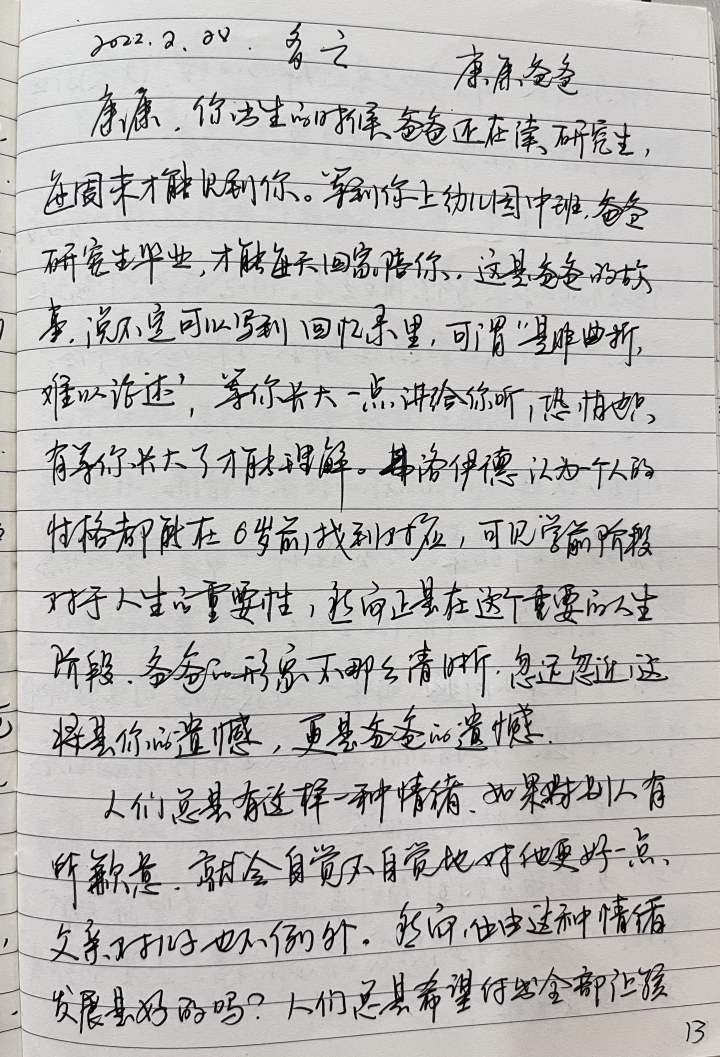 2022.2.28. 多云
康康爸爸
康康,你出生的时候,爸爸还在读研究生,
每周末才能见到你。等到你上幼儿园中班,爸爸
研究生毕业,才能每天回家陪你。这是爸爸的故
事,说不定可以写到回忆录里,可谓“是非曲折,
难以论述”,等你长大一点讲给你听,恐怕也只
有等你长大了才能理解。弗洛伊德认为一个人的
性格都能在6岁前找到对应,可见学前阶段
对于人生的重要性,然而正是在这个重要的人生
阶段,爸爸的形象不那么清晰,忽远忽近,这
将是你的遗憾,更是爸爸的遗憾。
人们总是有这样一种情绪,如果对别人有
所歉意,就会自觉不自觉地对他更好一点,
父亲对儿子也不例外。然而,任由这种情绪
发展是好的吗?人们总是希望付出全部让孩
13